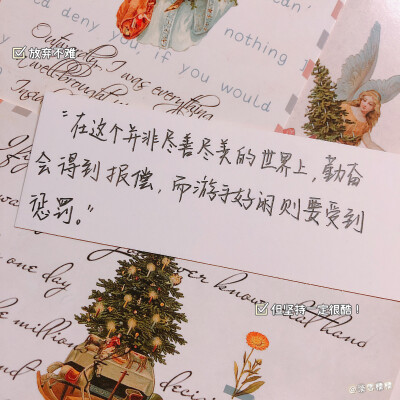 can deny you, if you would
nothing i
☑ 放弃不难
Outwardly, I was everything
well-brought
Insi
"在这个并非尽善尽美的世界上，勤奋
会得到报偿，而游手好闲则要受到
惩罚。"
know
one day
☑ 但坚持一定很酷！
million
and
deci